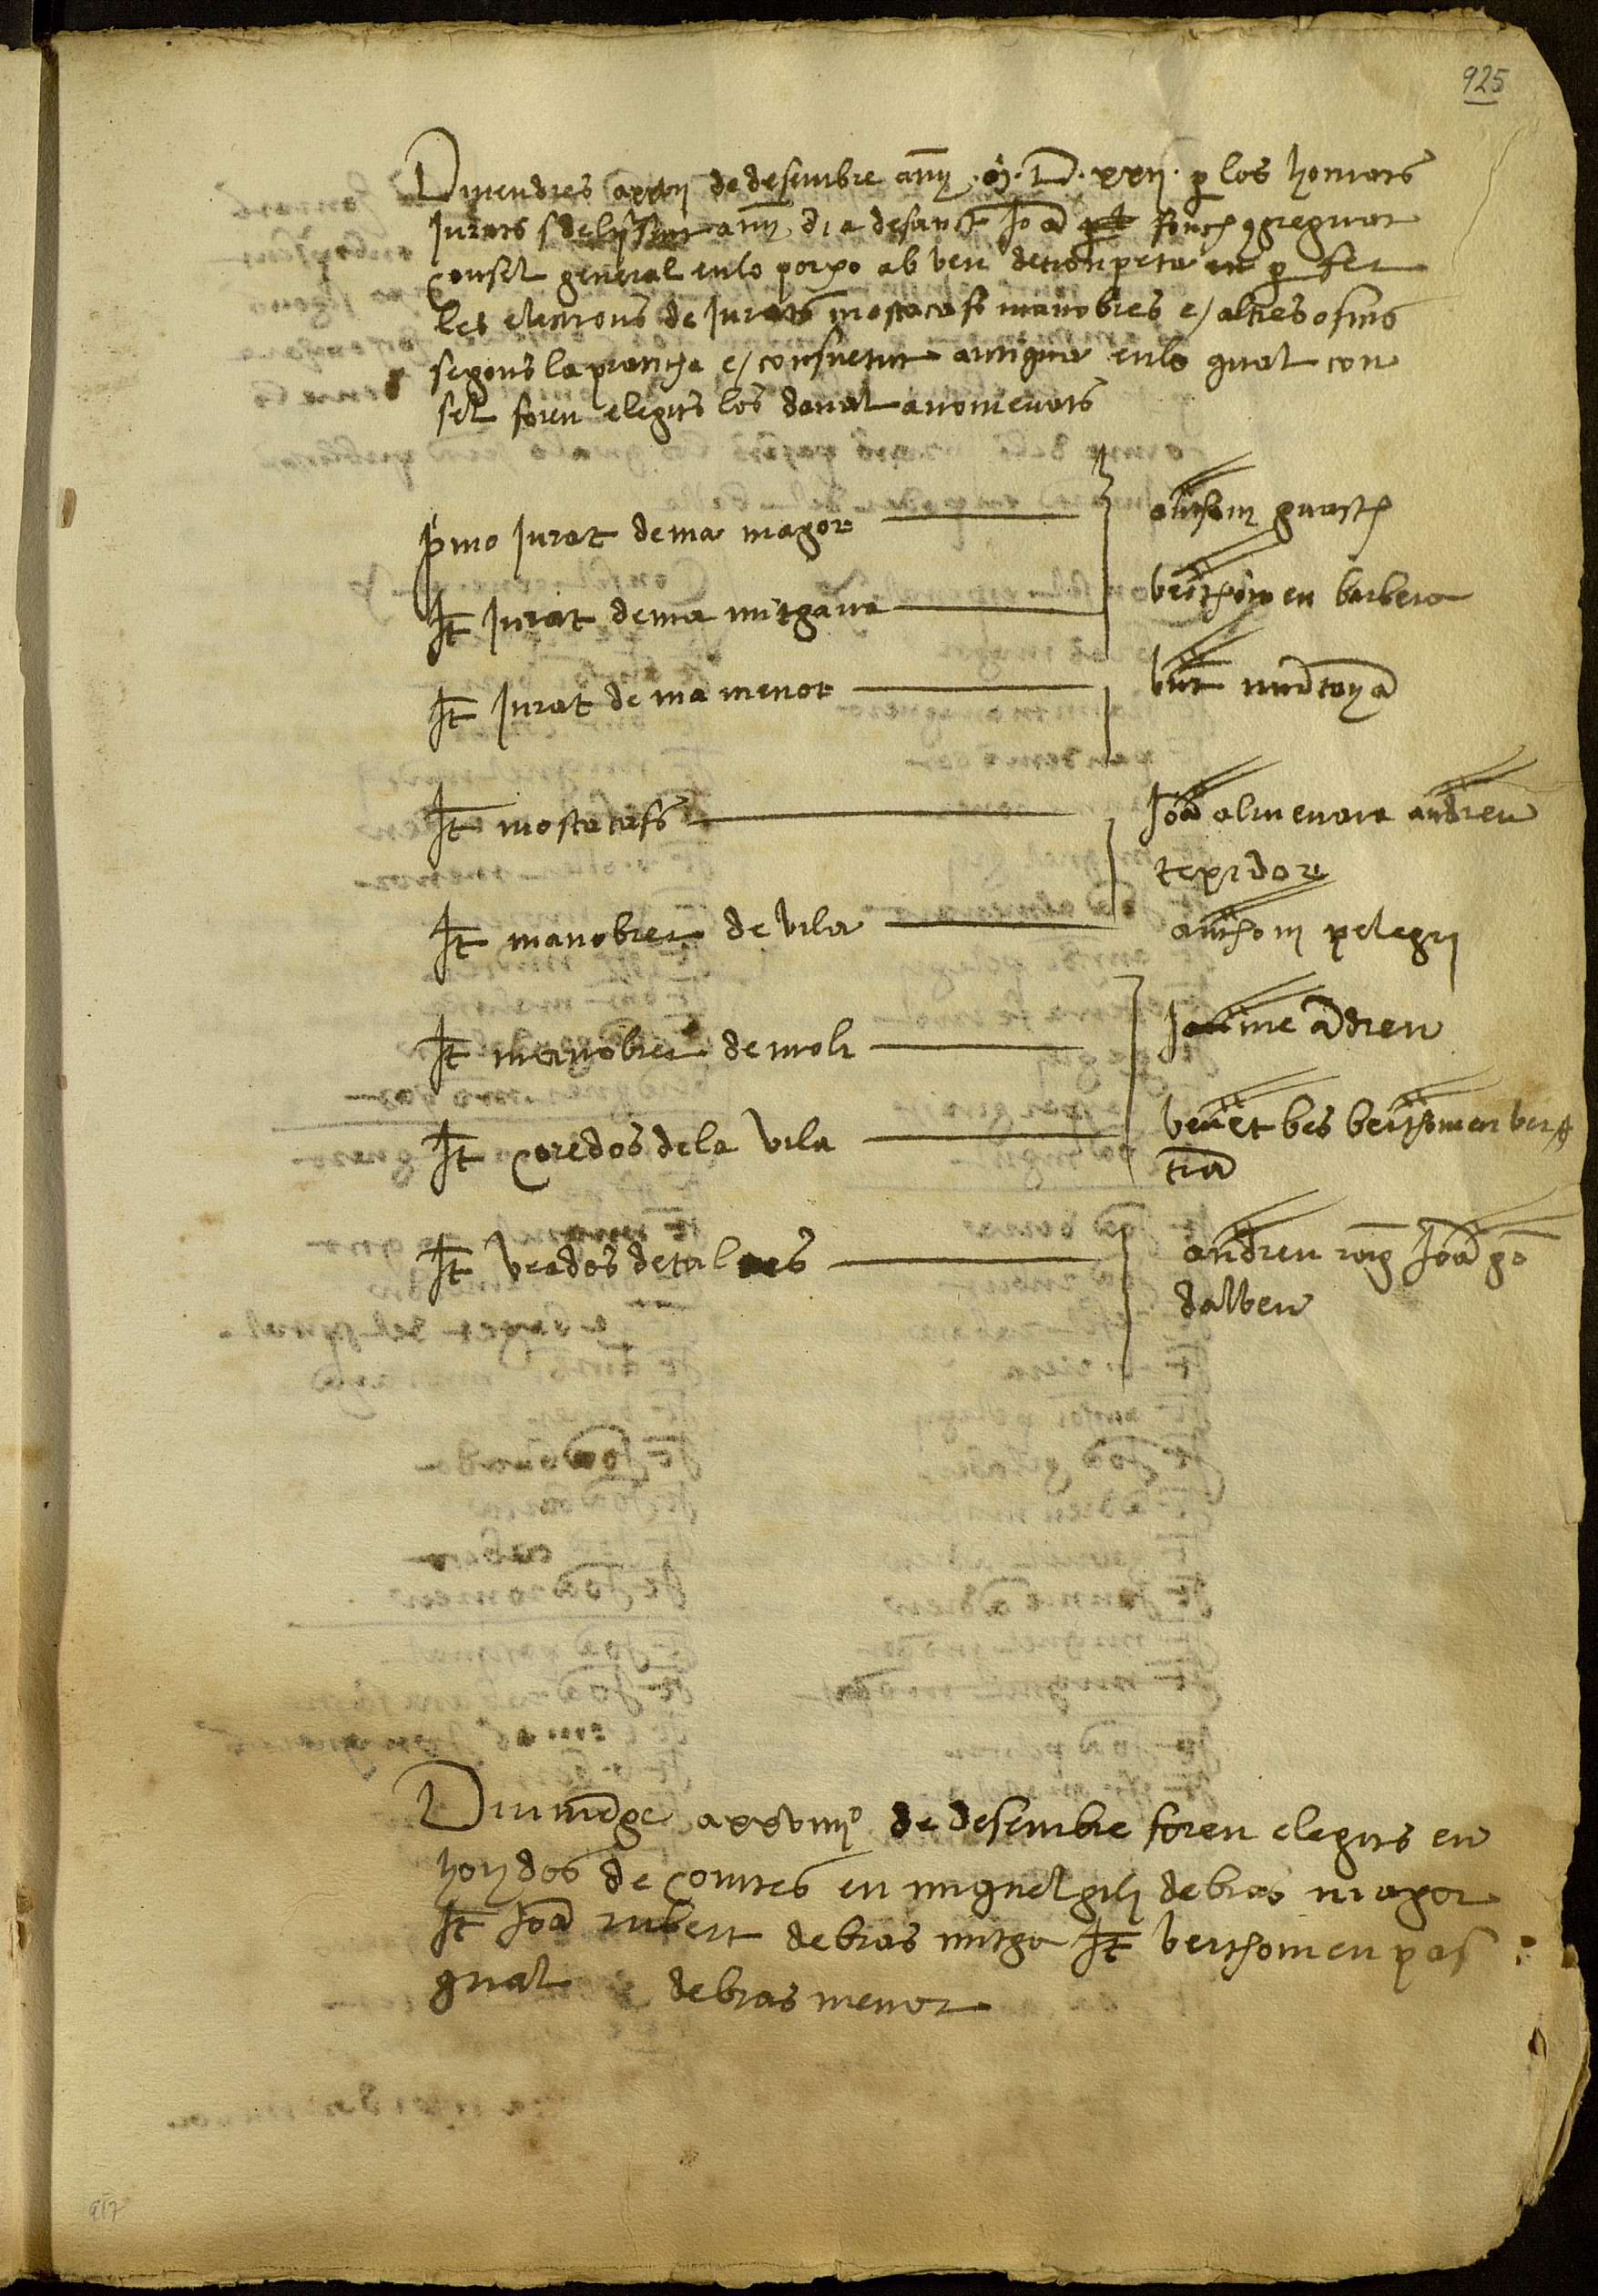 925
Divendres a xxvii de desembre any .M.D.xxii. p los honrats
Jurats del psent any dia de sanct Joã fonch ɔgreguat
Consel general en lo porxo ab veu de tronpeta p fer
les elections de Jurats mostacafs manobres e/ altres ofisis
segons la pratica e/ consuetut antigua en lo qual con
sel foren elegits los daval anomenats
pmo Jurat de ma magor
anthoni guasch
It Jurat de ma mitgana
berthomeu barbera
It Jurat de ma menor
vint muntanyã
It mostacafs
Joã almenara andreu
texidor
It manobrer de vila
anthoni pelegri
It manobrer de moli
Jaume ãdreu
It coredos de la vila
benet bes berthomeu
tiã
It veedos de tales
andreu roig Joã go
dalbeu
Diumẽge a xxviiiiº de desembre foren elegits en
hoydos de contes en miguel gili de bras magor
It Joã rubert de bras mitga It berthomeu pas
qual de bras menor
917